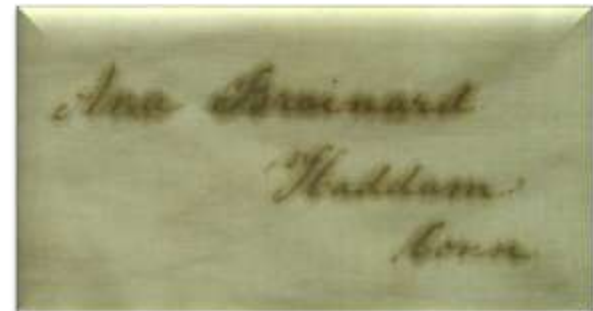 Ana Brainard
Haddam
Conn